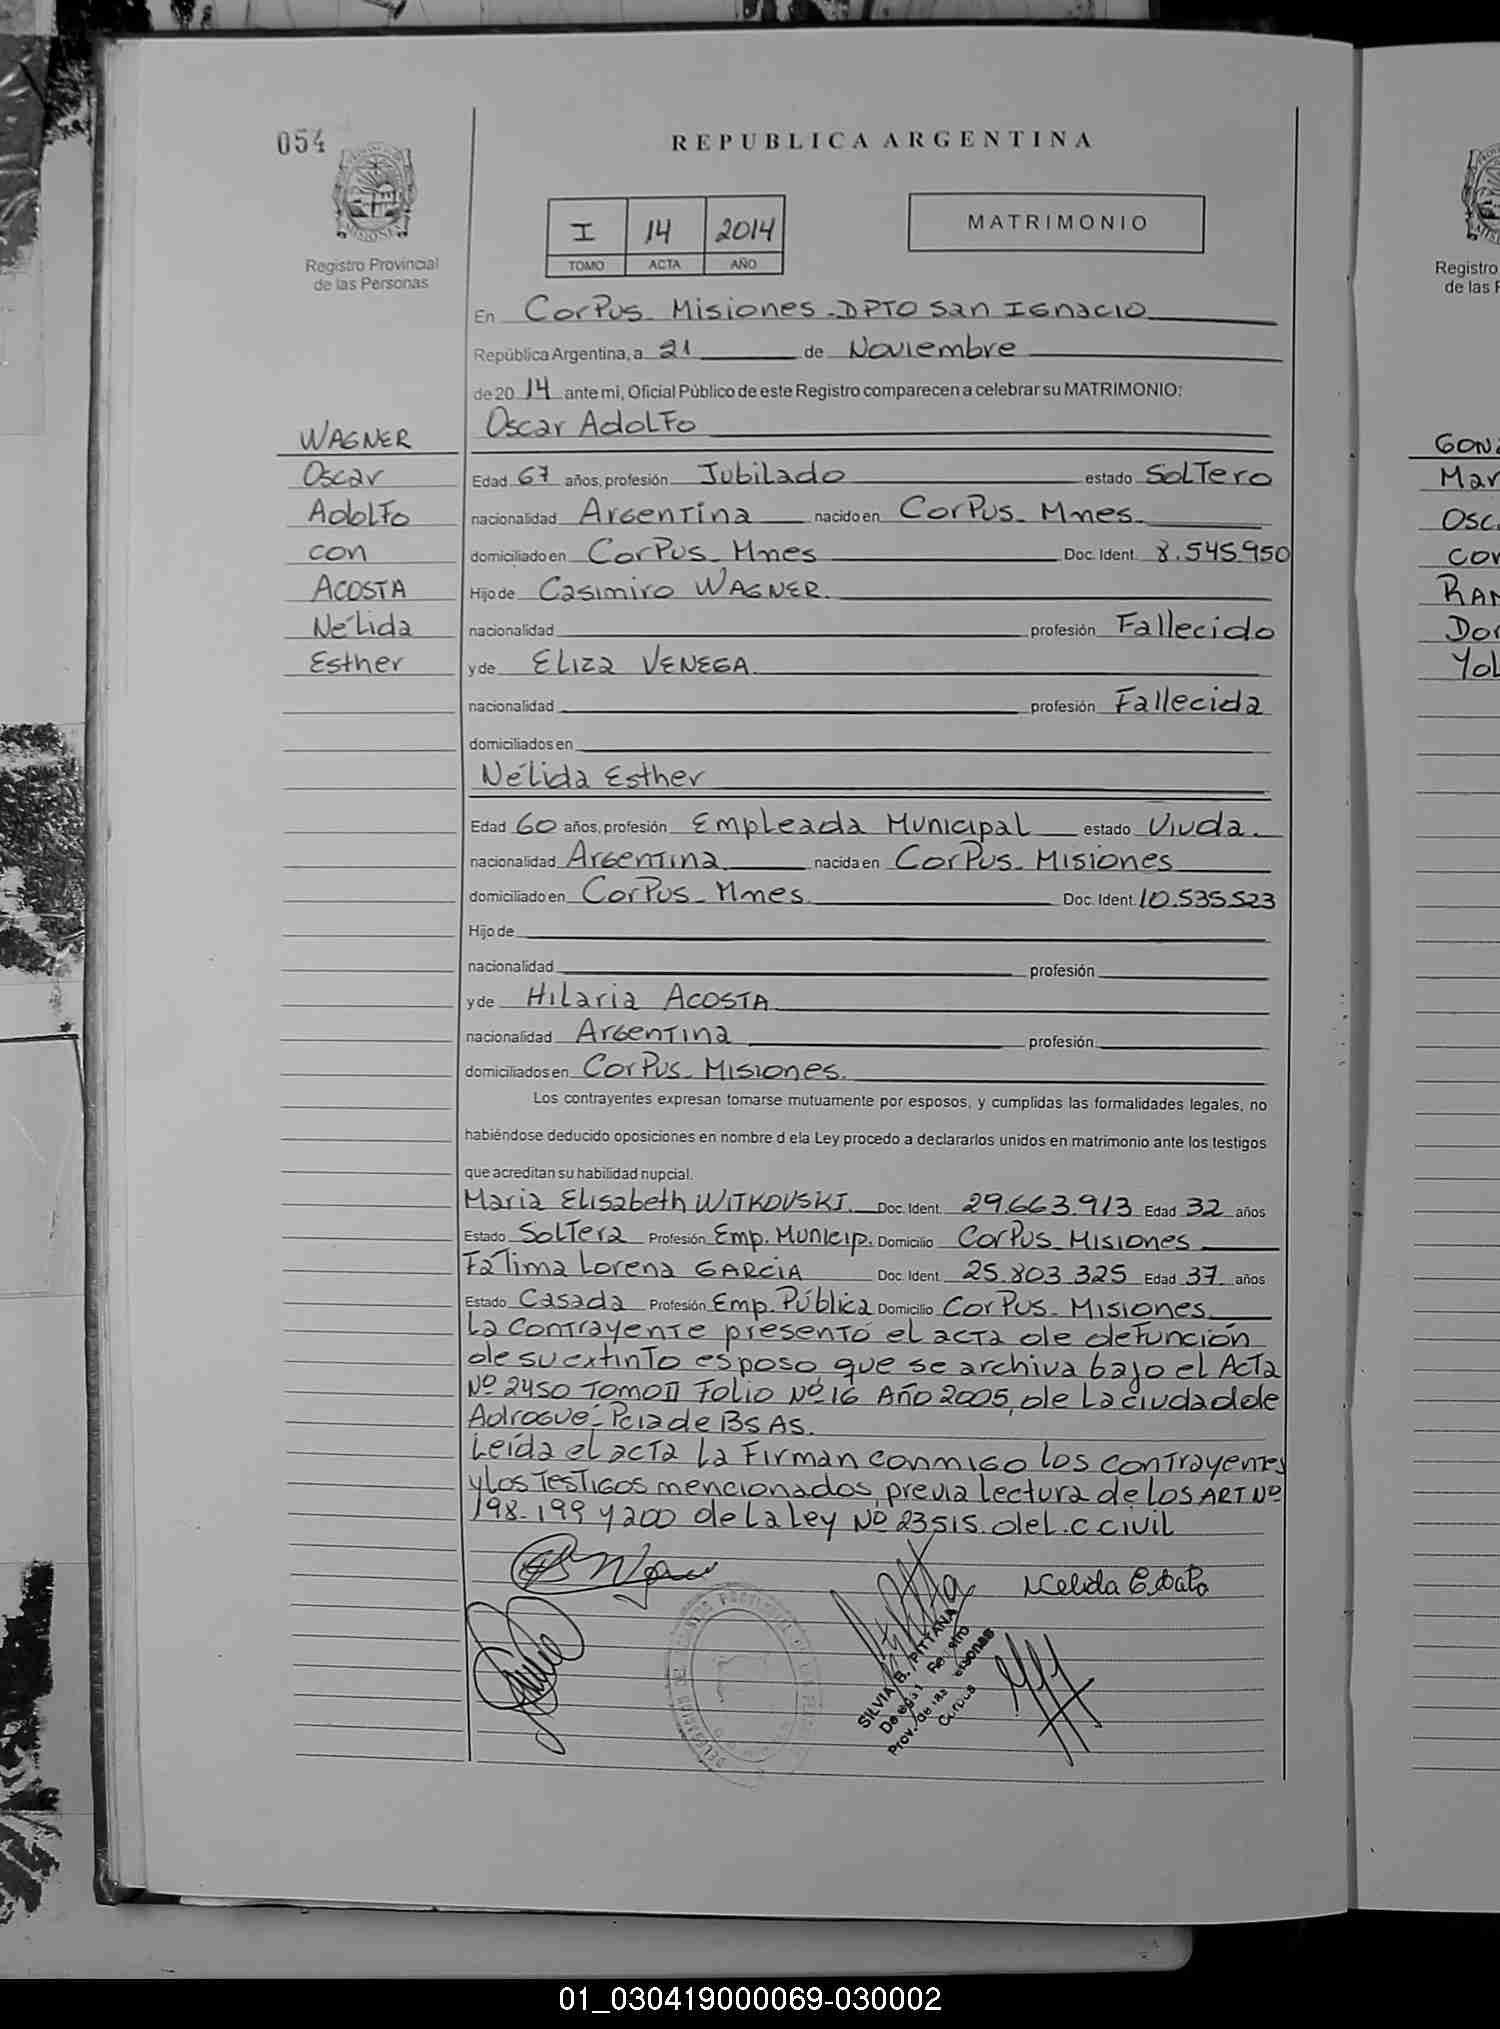 054
REPUBLICA ARGENTINA
MISIONES
Registro Provincial
de las Personas
I 14 2014
TOMO ACTA AÑO
MATRIMONIO
En CorPus Misiones - DPTO San Ignacio
República Argentina, a 21 de Noviembre
de 2014 ante mi, Oficial Público de este Registro comparecen a celebrar su MATRIMONIO:
WAGNER
Oscar
Adolfo
con
ACOSTA
Nélida
Esther
Oscar Adolfo
Edad 67 años, profesión Jubilado estado Soltero
nacionalidad Argentina nacido en CorPus - Mnes
domiciliado en CorPus - Mnes Doc. Ident. 8.545.950
Hijo de Casimiro WAGNER.
nacionalidad profesión Fallecido
y de Eliza VENEGA
nacionalidad profesión Fallecida
domiciliados en
Nélida Esther
Edad 60 años, profesión Empleada Municipal estado Viuda.
nacionalidad Argentina nacida en CorPus - Misiones
domiciliado en CorPus - Mnes Doc. Ident. 10.535.523
Hijo de
nacionalidad profesión
y de Hilaria ACOSTA
nacionalidad Argentina profesión
domiciliados en CorPus - Misiones.
Los contrayentes expresan tomarse mutuamente por esposos, y cumplidas las formalidades legales, no
habiéndose deducido oposiciones en nombre d ela Ley procedo a declararlos unidos en matrimonio ante los testigos
que acreditan su habilidad nupcial.
Maria Elisabeth WITKOVSKI. Doc. Ident. 29.663.913 Edad 32 años
Estado Soltera Profesión Emp. Municip. Domicilio CorPus - Misiones
Fátima Lorena GARCIA Doc. Ident. 25.803.325 Edad 37 años
Estado Casada Profesión Emp. Pública Domicilio CorPus - Misiones
La contrayente presentó el acta de defunción
de su extinto esposo que se archiva bajo el Acta
Nº 2450 Tomo II Folio Nº 16 Año 2005, de la ciudad de
Adrogué - Pcia de Bs As.
Leída el acta la firman conmigo los contrayentes
y los testigos mencionados, previa lectura de los ART Nº
198 - 199 y 200 de la Ley Nº 23515 del C Civil
SILVIA B. PITTANA
Delegat Registro
Prov. de las Personas
Corpus
Registro
de las P
GONZ
Mar
Osc
con
RAM
Dor
Yol
01_030419000069-030002